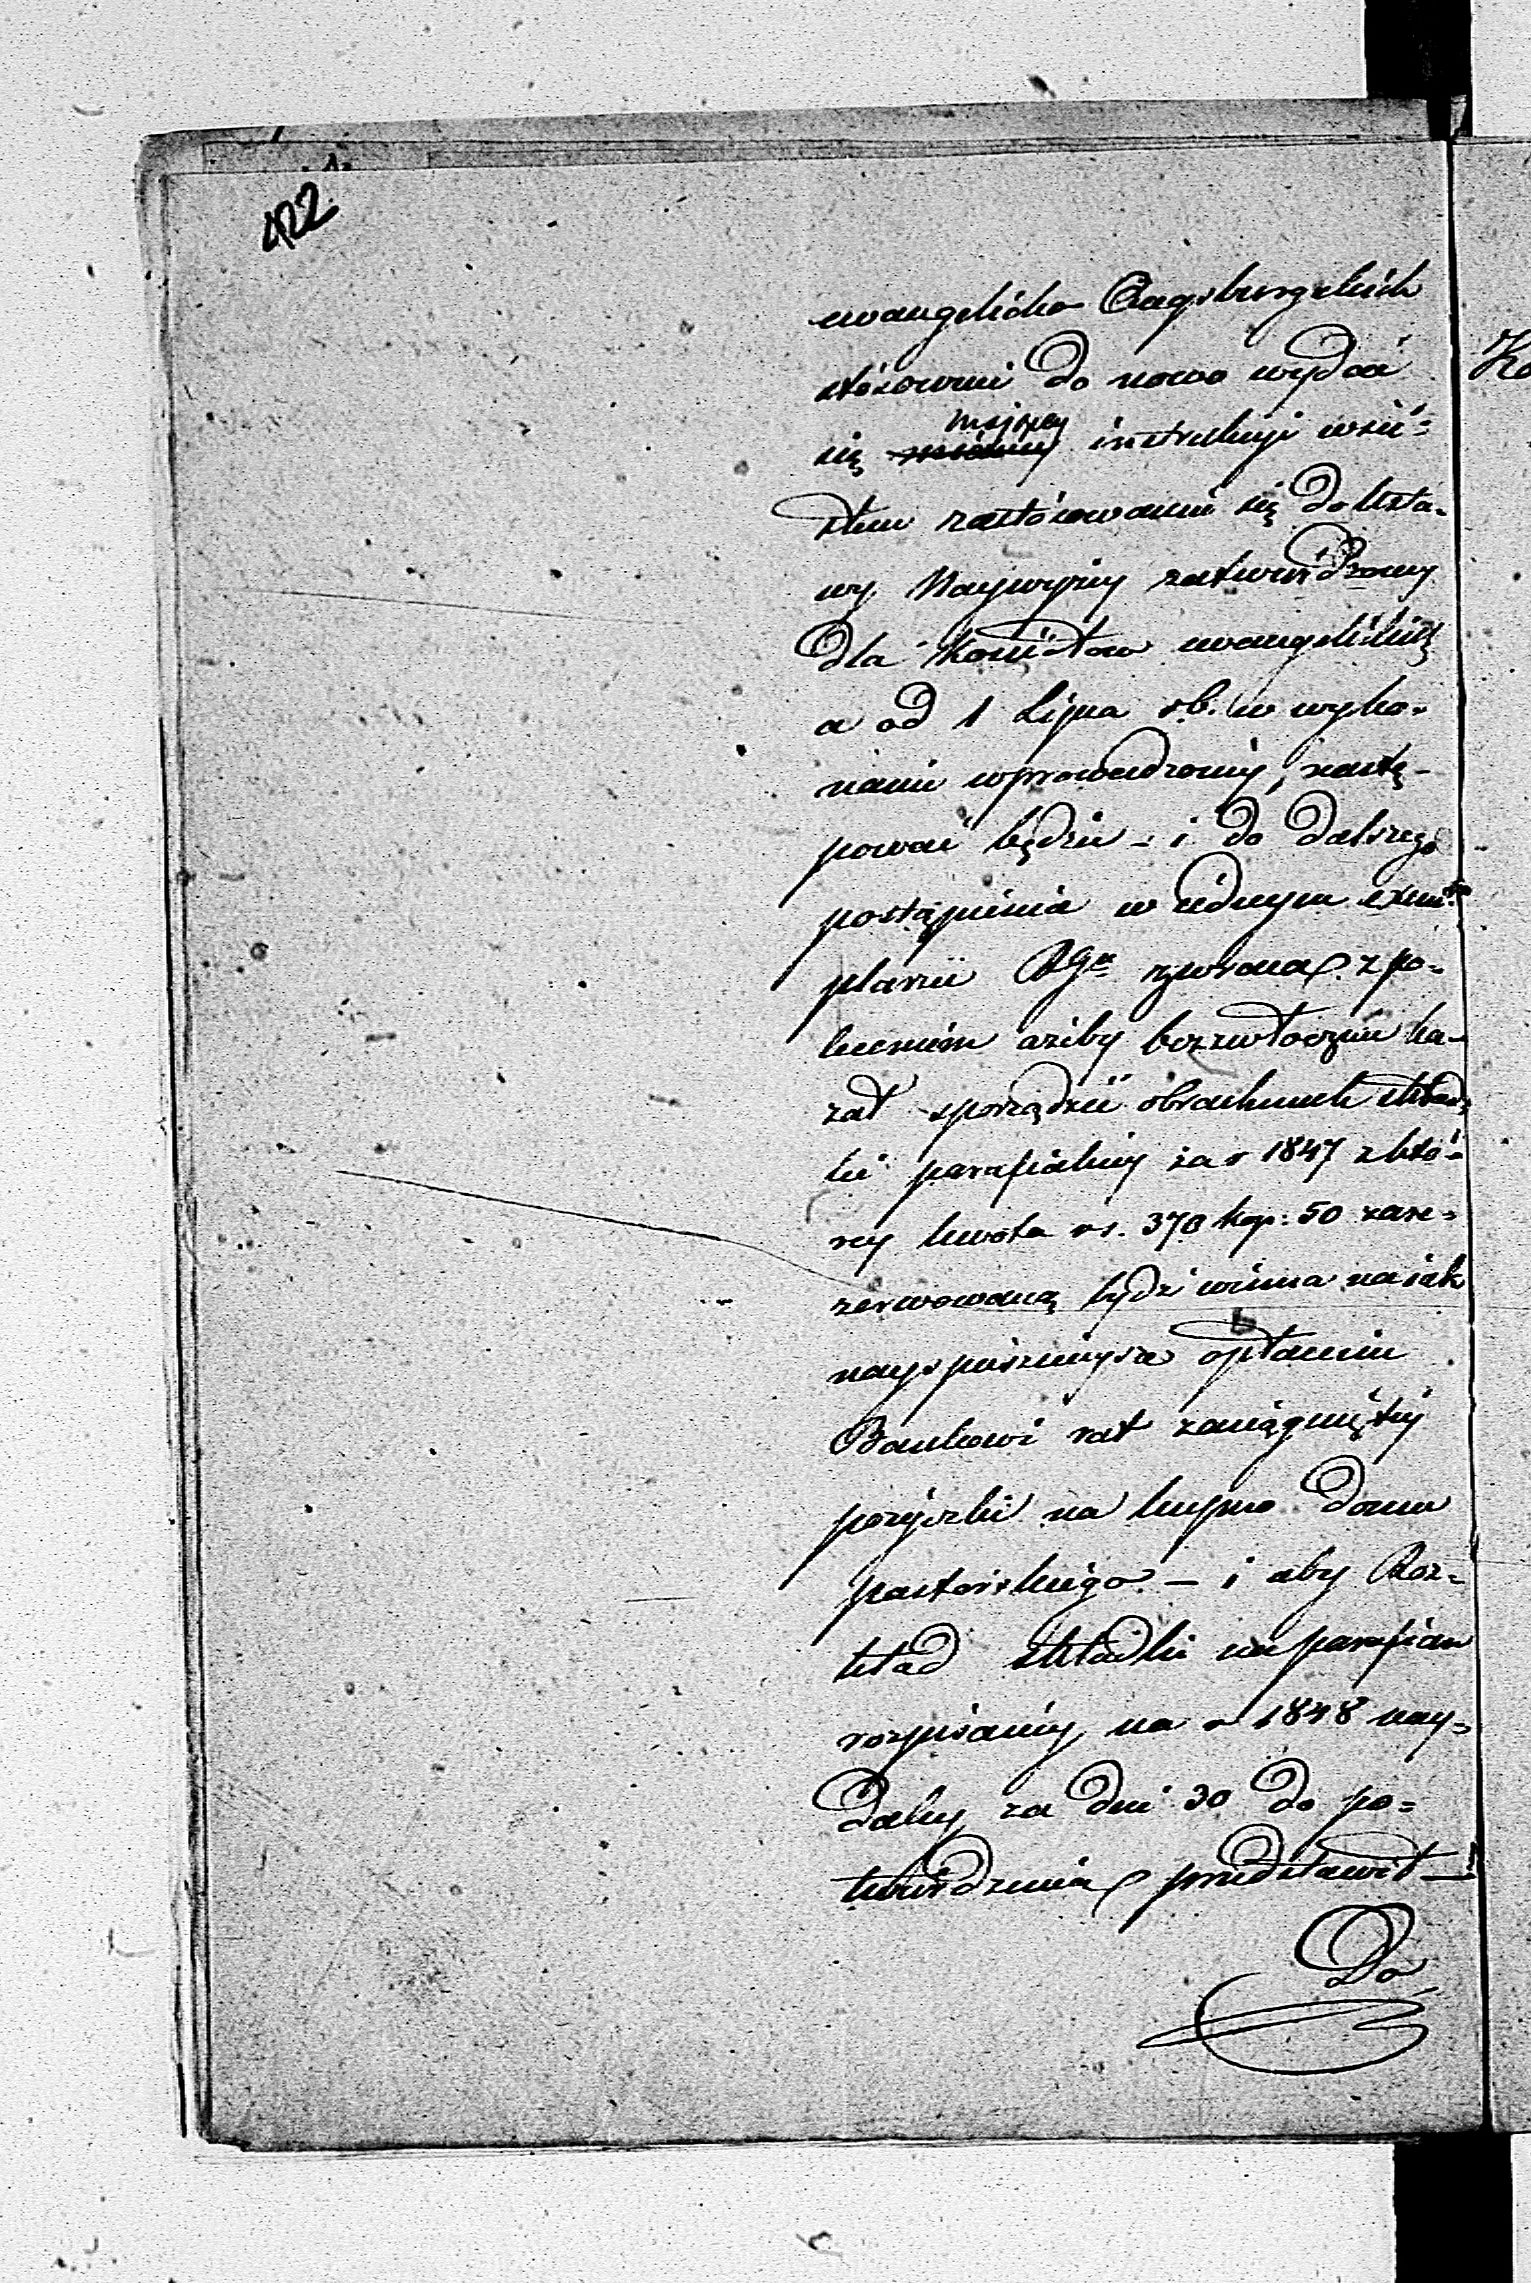 422
ewangelicko Augsburgskich
stósownie do nowo wydać
się mającej instrukcyi wści=
słem zastósowaniu się do Usta=
wy Naywyżey zatwierdzoney
dla kościołów ewangelickich
a od 1 Lipca rb. w wyko=
nanie wprowadzoney, nastę=
pować będzie – i do dalszego
postąpienia w iednym exem=
plarzu zwraca z po=
leceniem ażeby bezzwłocznie ka=
zał sporządzić obrachunek skład=
ki parafialney za r 1847 z któ=
rey kwota rs. 370 kop: 50 zare=
zerwowaną bydź winna na iak
nayspiesznieysze opłacenie
Bankowi rat zaciągniętey
pożyczki na kupno domu
pastorskiego. – i aby Roz=
kład składki na parafian
rozpisaney na r 1848 nay=
daley za dni 30 do po=
twierdzenia przedstawił –
Do
Ko